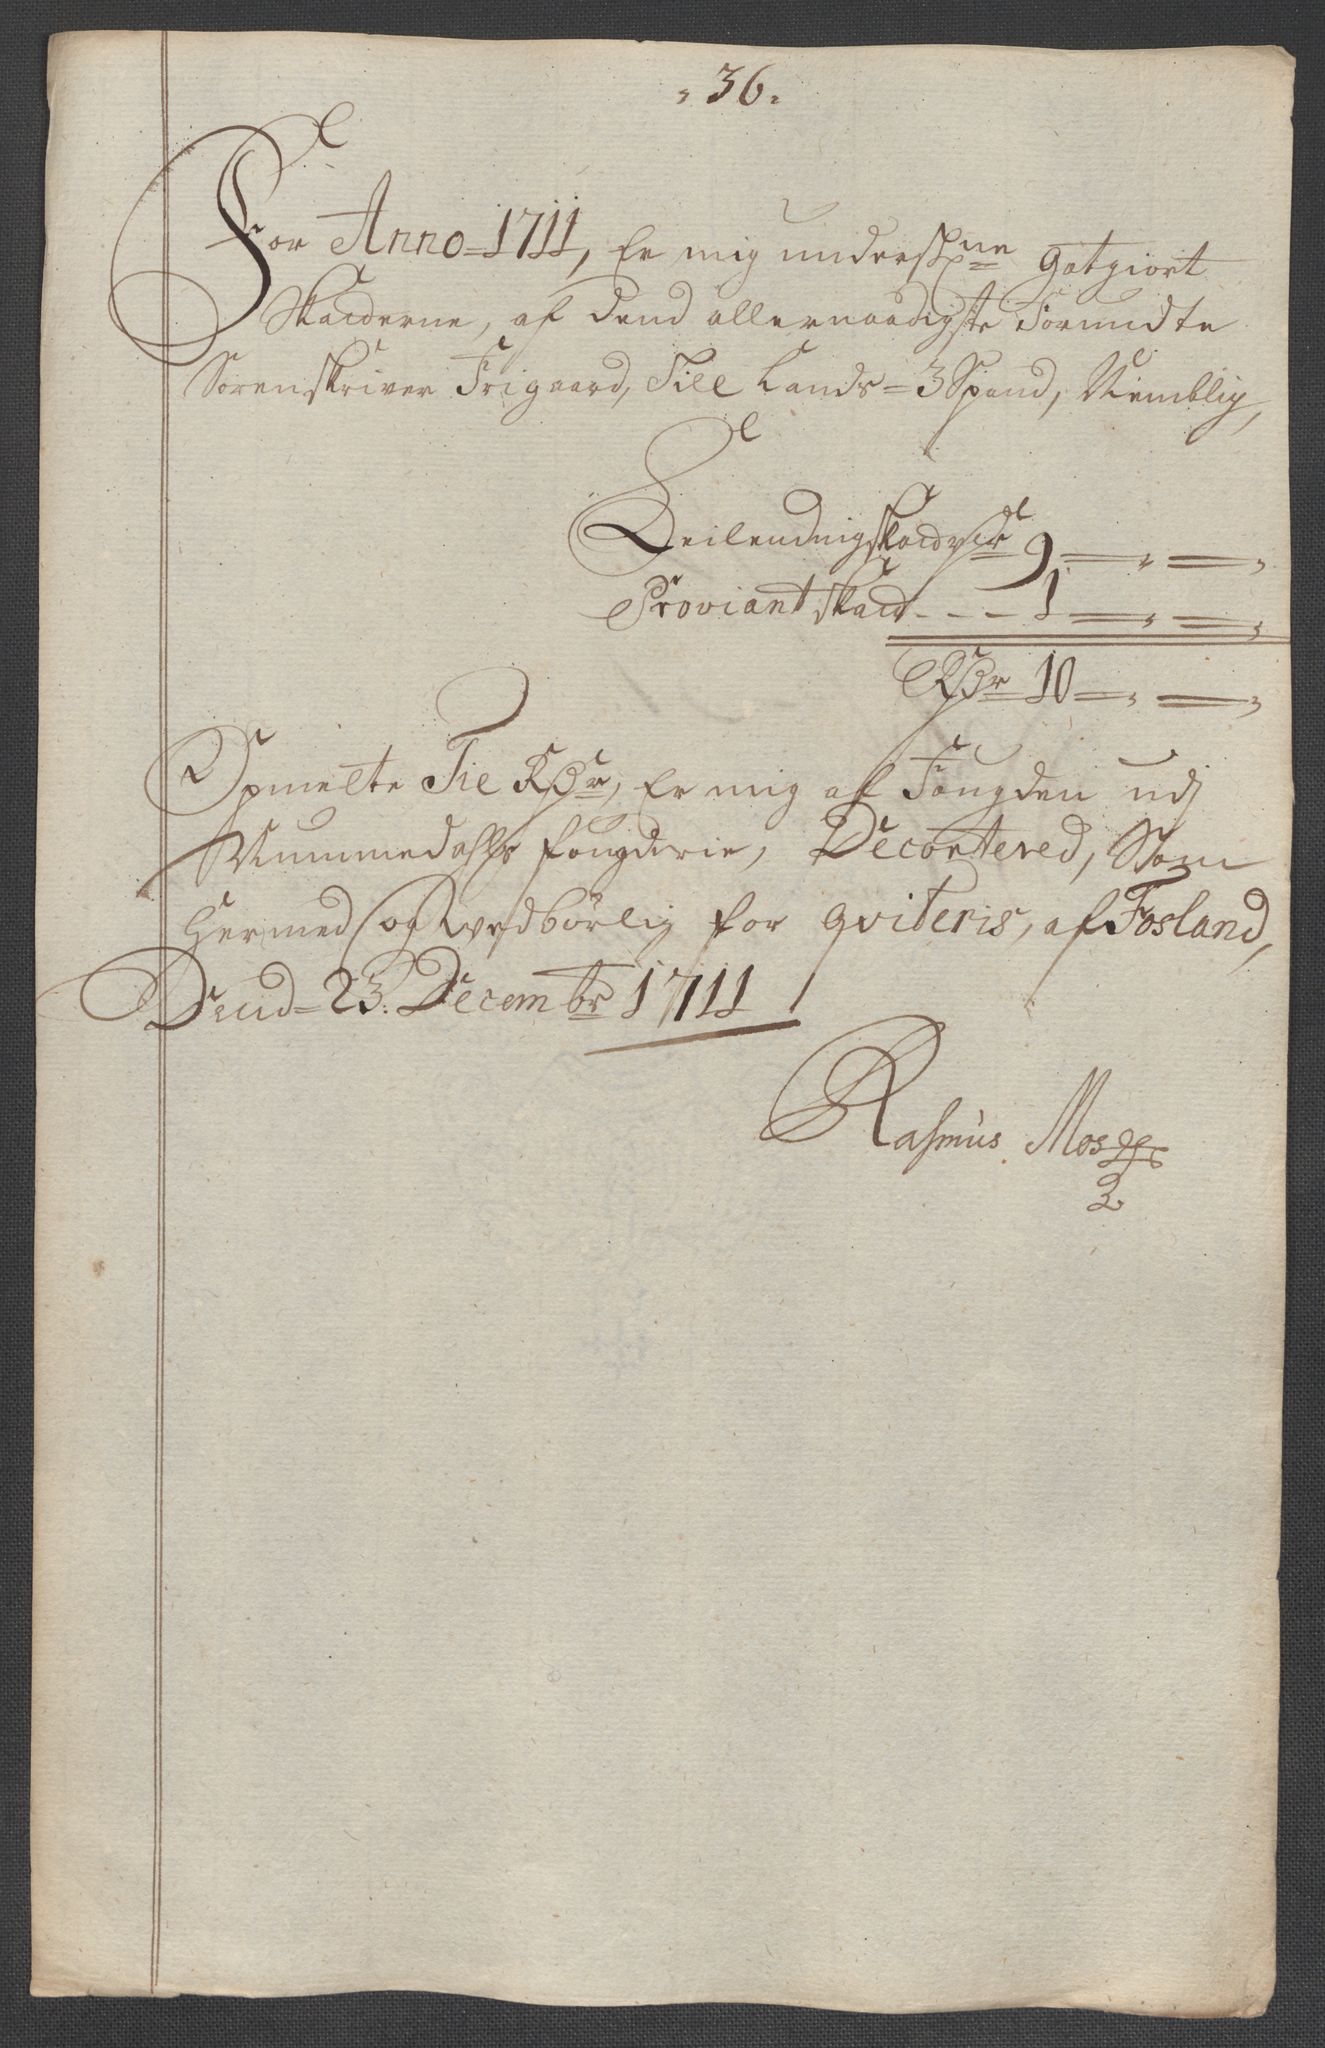 36.
For Anno 1711, Er mig underskne gotgiort
Skatterne, af dend allernaadigste Forundte
Sorenskriver Frigaard, Till Lands = 3 Spand, Nemblig,
Leilendings skatt 9
Proviant skatt 1
Rdr 10
Opmelte Tie Rdr, Er mig af Fougden udj
Nummedahls fougderie, Decortered, Som
Hermed og vedbørlig for qviteris, af Fosland,
Dend = 23. Decembr 1711
Rasmus Mos